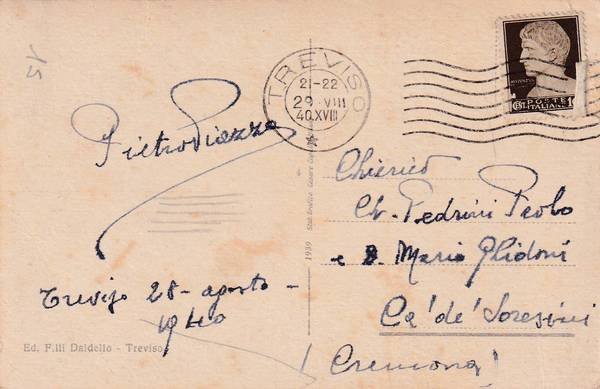 15
TREVISO
21-22
29·VIII
40.XVIII
CENT POSTE
ITALIANE
Pietro Piazza
Treviso 28 - agosto -
1940
Ed. F.lli Daldello - Treviso
1939
Chierico
Ch. Pedrini Paolo
e D. Mario
Ca' de' Soresini
(Cremona)